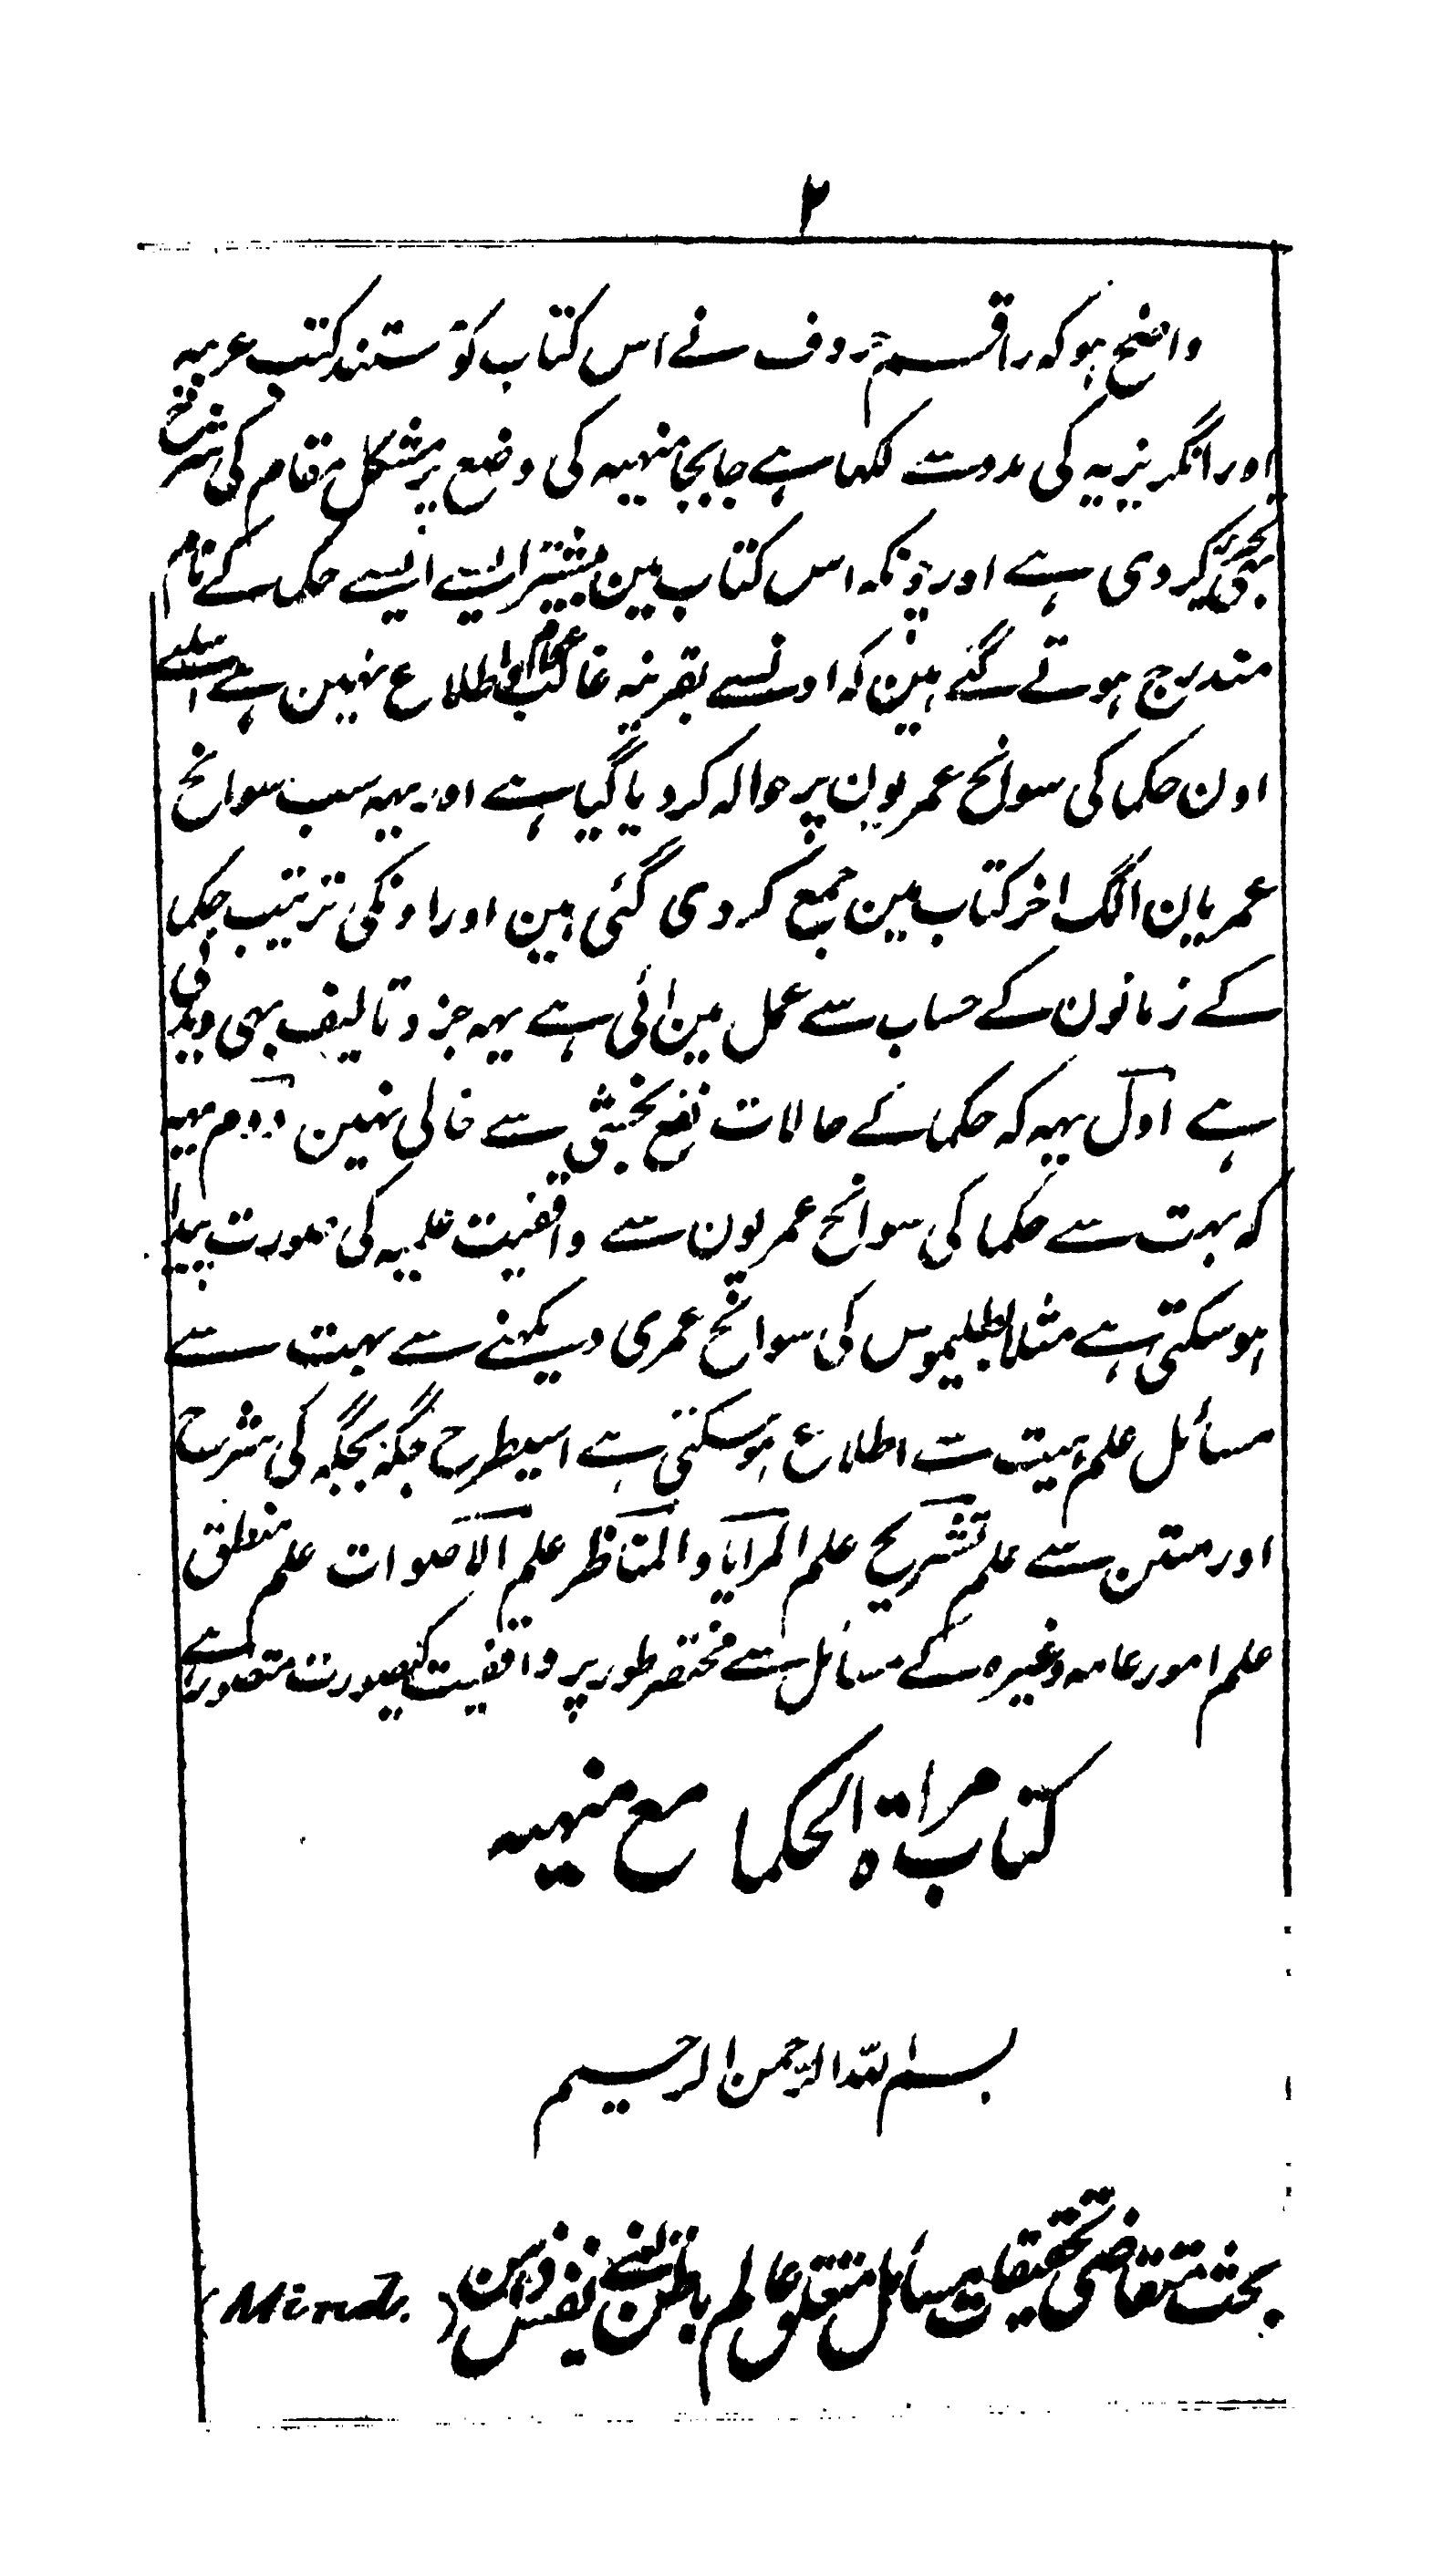 ۲
واضح ہو کہ راقم حروف نے اس کتاب کو مستند کتب عربیہ
اور انگریزیہ کی مدد سے لکہا ہے جابجا منہیہ کی وضع پر مشکل مقام کی شرح
بہی کر دی ہے اور چونکہ اس کتاب مین بیشتر ایسے ایسے حکما کے نام
مندرج ہوتے گئے ہین کہ اونسے بقرینہ غالب عوام کو اطلاع نہین ہے اسلیے
اون حکما کی سوانح عمریون پر حوالہ کر دیا گیا ہے اور یہہ سب سوانح
عمریان الگ اخر کتاب مین جمع کر دی گئی ہین اور اونکی ترتیب حکما
کے زمانون کے حساب سے عمل مین ائی ہے یہہ جزو تالیف بہی دیدنی
ہے اول یہہ کہ حکما کے حالات نفع بخشی سے خالی نہین دوم یہہ
کہ بہت سے حکما کی سوانح عمریون سے واقفیت علمیہ کی صورت پیدا
ہو سکتی ہے مثلا بطلیموس کی سوانح عمری دیکہنے سے بہت سے
مسائل علم ہیت سے اطلاع ہو سکتی ہے اسیطرح جگہ بجگہ کی شرح
اور متن سے علم تشریح علم المرایا والمناظر علم الاصوات علم منطق
علم امور عامہ وغیرہ کے مسائل سے مختصر طور پر واقفیت کی صورت متصور ہے
کتاب مراۃ الحکما مع منہیہ
بسم اللہ الرحمن الرحیم
بحث متقاضی تحقیقات مسائل متعلق عالم باطن یعنے نفس ذہن (Mind.)